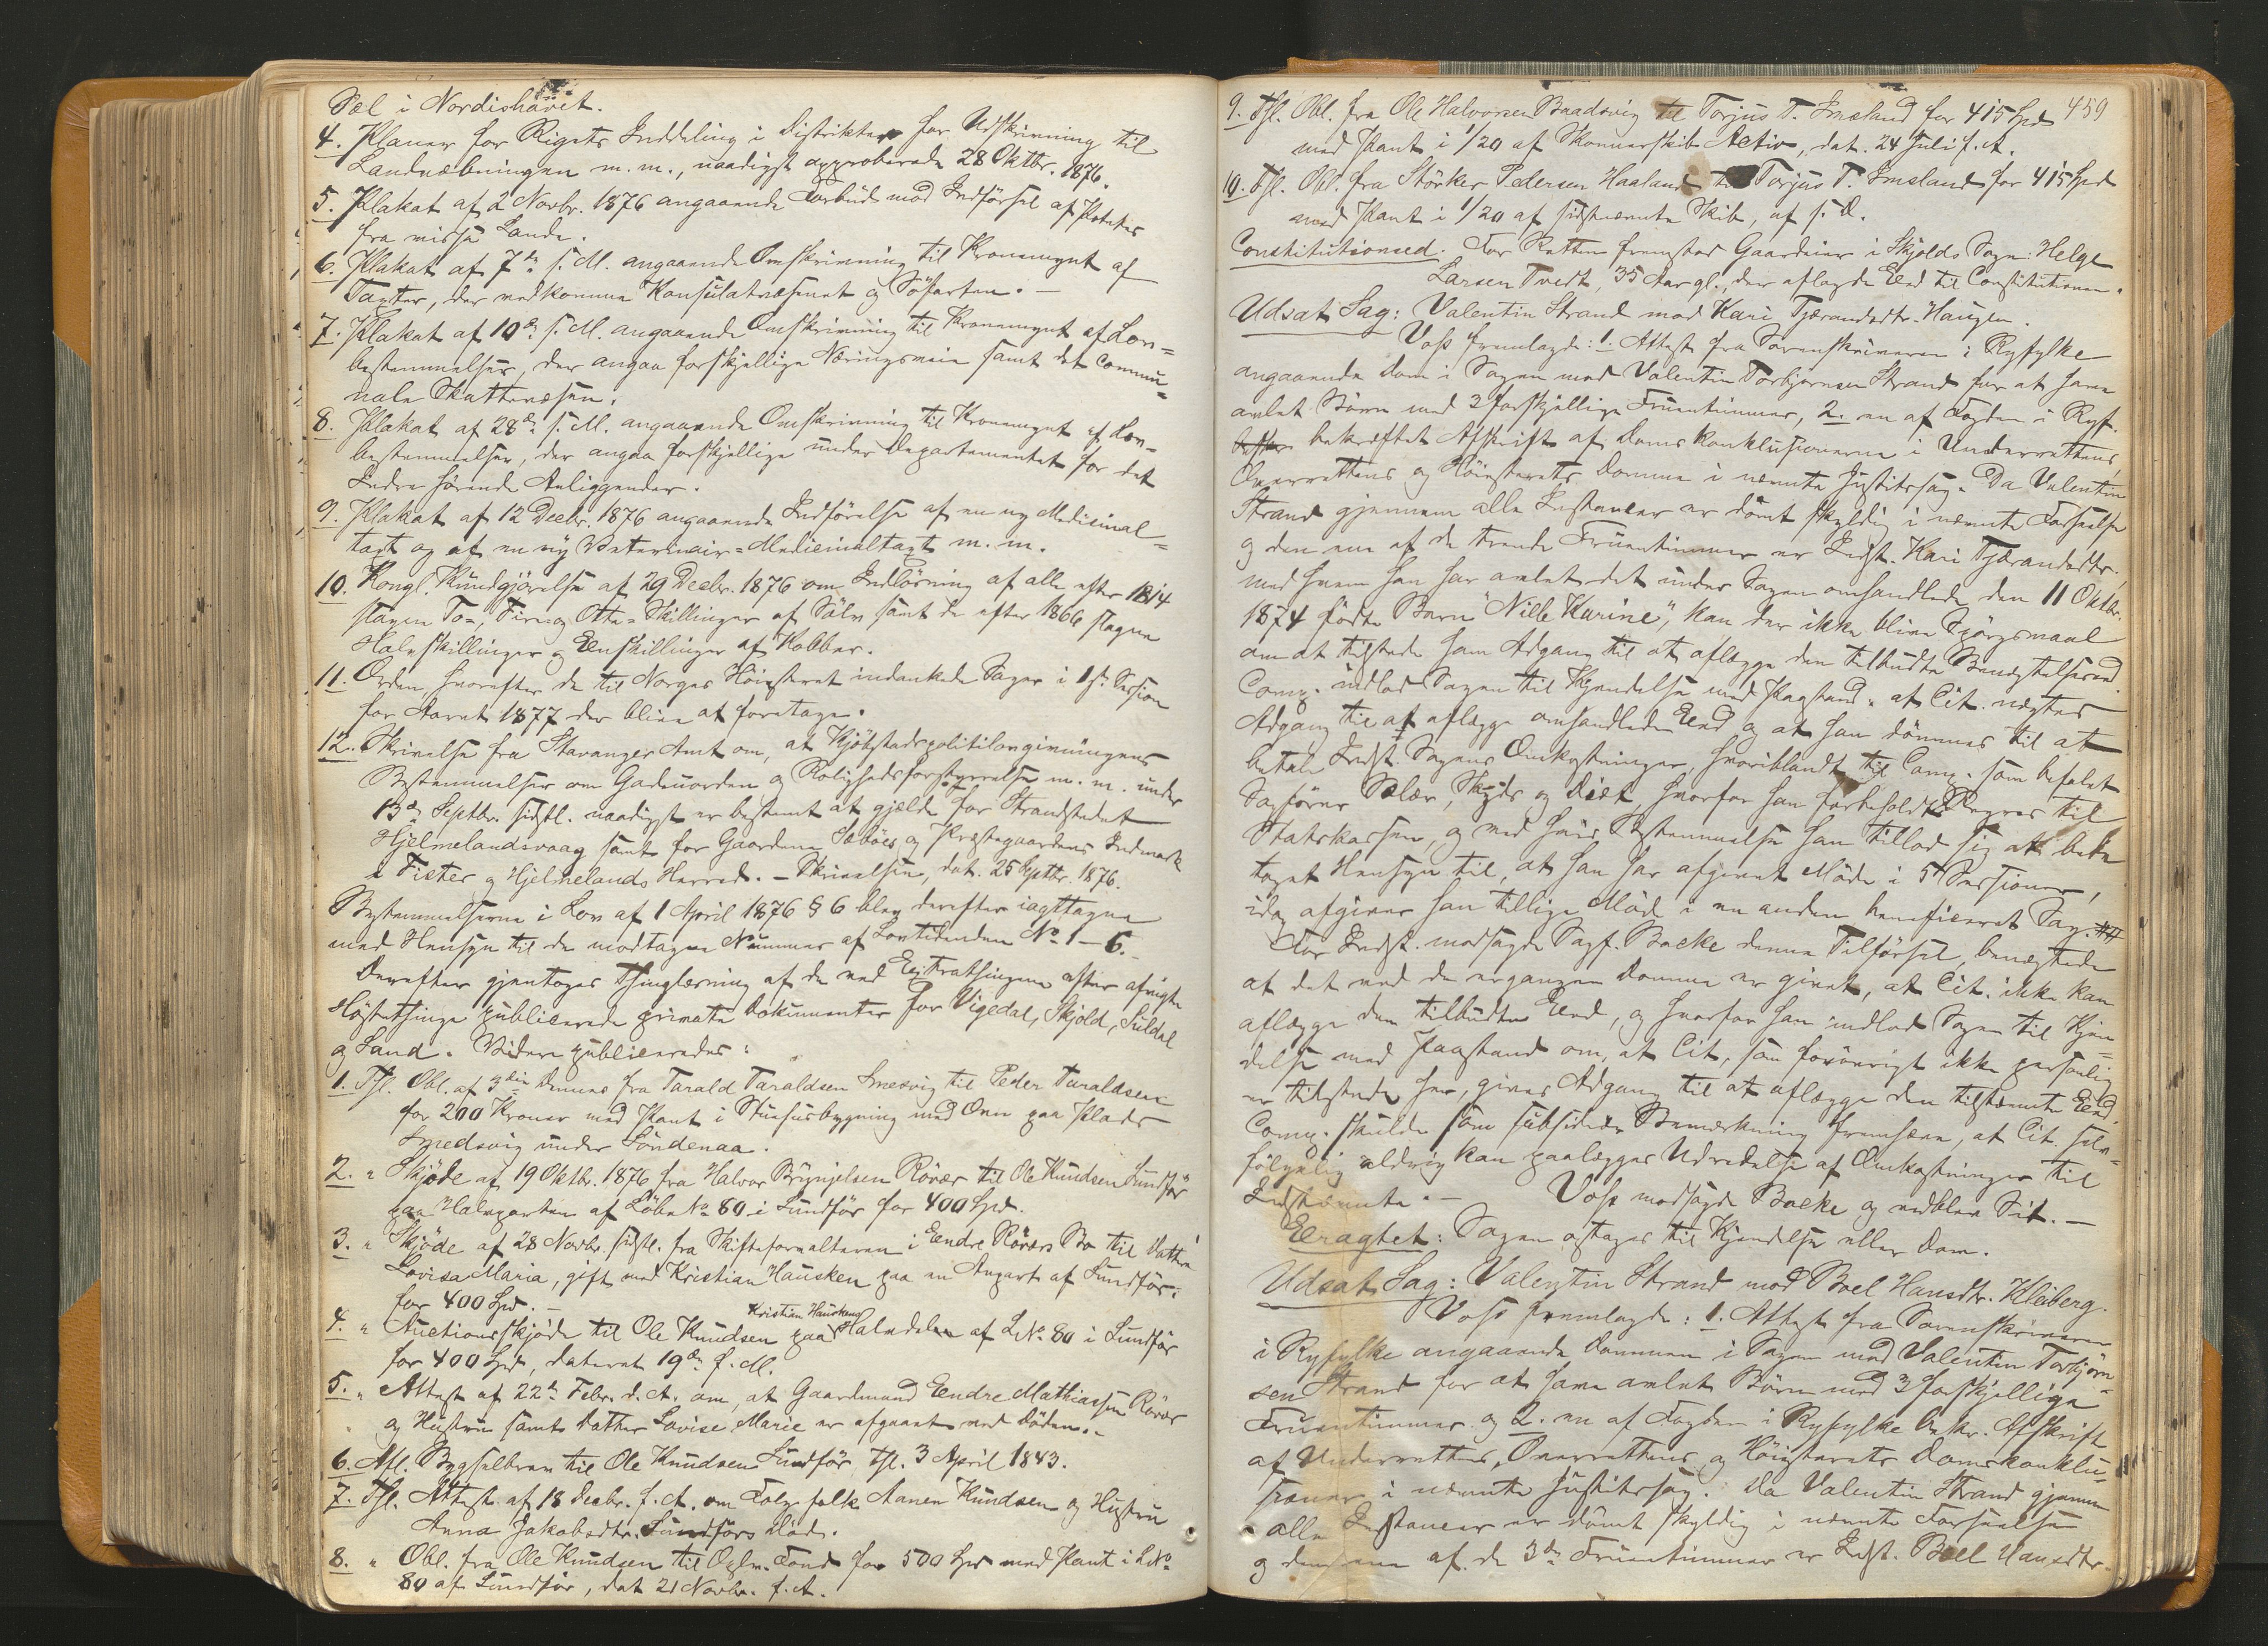 Sæl i Nordishavet.
4. Planer for Rigets Inddeling i Distrikter for Udskrivning til
Landvæbningen m. m., naadigst approberede 28 Oktbr. 1876.
5. Plakat af 2 Novbr. 1876 angaaende Forbud mod Indførsel af Poteter
fra visse Lande.
6. Plakat af 7de s. M. angaaende Omskrivning til Kronemynt af
Taxter, der vedkomme Konsulatvæsenet og Søfarten. —
7. Plakat af 10de s. M. angaaende Omskrivning til Kronemynt af Lov=
bestemmelser, der angaa forskjellige Næringsveie samt det commu=
nale Skattevæsen.
8. Plakat af 28de s. M. angaaende Omskrivning til Kronemynt af Lov=
bestemmelser, der angaa forskjellige under Departementet for det
Indre hørende Anliggender.
9. Plakat af 12 Decbr. 1876 angaaende Indførelse af en ny Medicinal=
taxt og af en ny Veterinair=Medicinaltaxt m. m.
10. Kongl. Kundgjørelse af 29 Decbr. 1876 om Indløsning af alle efter 1814
slagne To=, Fire= og Otte=Skillinger af Sølv samt de efter 1866 slagne
Halvskillinger og Eenskillinger af Kobber.
11. Orden, hvorefter de til Norges Høiesteret indankede Sager i 1ste Session
for Aaret 1877 der blive at foretage.
12. Skrivelse fra Stavanger Amt om, at Kjøbstadspolitilovgivningens
Bestemmelser om Gadeuorden og Rolighedsforstyrrelse m. m. under
13de Septbr. sidstl. naadigst er bestemt at gjælde for Strandstedet
Hjelmelandsvaag samt for Gaardene Sæbøes og Præstegaardens Indmark
i Fister og Hjelmelands Herred. — Skrivelsen, dat. 25 Septbr. 1876.
Bestemmelserne i Lov af 1 April 1876 § 6 blev derefter iagttagne
med Hensyn til de modtagne Nummer af Lovtidenden No 1—6.
Derefter gjentoges Thinglæsning af de ved Extrathingene efter afvigte
Høstethinge publicerede private Dokumenter for Vigedal, Skjold, Suldal
og Sand. Videre publiceredes:
1. Thl. Obl. af 3die Dennes fra Tarald Taraldsen Smesvig til Peder Taraldsen
for 200 Kroner med Pant i Stuehusbygning med Ovn paa Plads
Smedsvig under Søndenaa.
2. " Skjøde af 19 Oktbr. 1876 fra Halvor Brynjelsen Røvær til Ole Knudsen Sundfør
paa Halvparten af Løbe No 80 i Sundfør for 400 Spd.
3. " Skjøde af 28 Novbr. sidstl. fra Skifteforvalteren i Eendre Røværs Bo til Datter
Lovisa Maria, gift med Kristian Hausken paa en Anpart af Sundfør
for 400 Spd. —
Kristian Hauskens
4. " Auctionsskjøde til Ole Knudsen paa Halvdelen af LNo 80 i Sundfør
for 400 Spd, dateret 19de f. M.
5. " Attest af 22de Febr. d. A. om, at Gaardmand Eendre Mathiassen Røvær
og Hustru samt Datter Lovise Marie er afgaaet ved Døden.
6. Afl. Bygselbrev til Ole Knudsen Sundfør, thl. 3 April 1843.
7. Thl. Attest af 18 Decbr. f. A. om Folgefolk Aanen Knudsen og Hustru
Anna Jakobsdtr. Sundførs Død.
8. " Obl. fra Ole Knudsen til Oplv. Fond for 500 Spd med Pant i LNo
80 af Sundfør, dat 21 Novbr. f. A.
459
9. Thl. Obl. fra Ole Halvorsen Baadsvig til Torjus T. Imsland for 415 Spd
med Pant i 1/20 af Skonnerskib Activ, dat. 24 Juli f. A.
10. Thl. Obl. fra Størker Pedersen Haaland til Torjus T. Imsland for 415 Spd
med Pant i 1/20 af sidstnævnte Skib, af s. D.
Constitutionsed. For Retten fremstod Gaardeier i Skjolds Sogn: Helge
Larsen Tvedt, 35 Aar gl., der aflagde Eed til Constitutionen.
Udsat Sag: Valentin Strand mod Kari Tjærandsdtr. Haugen.
Voss fremlagde: 1. Attest fra Sorenskriveren i Ryfylke
angaaende Dom i Sagen mod Valentin Torbjørnsen Strand for at have
avlet Børn med 3 forskjellige Fruentimmer, 2. en af Fogden i Ryf.
bekræftet Afskrift af Doms konklusionerne i Underrettens,
Overrettens og Høiesterets Domme i nævnte Justitssag. Da Valentin
Strand gjennem alle Instanser er dømt skyldig i nævnte Forseelse
og den ene af de trende Fruentimmer er Indst. Kari Tjærandsdtr.,
med hvem han har avlet det under Sagen omhandlede den 11 Oktbr.
1874 fødte Barn "Nille Karine", kan der ikke blive Spørgsmaal
om at tilstede ham Adgang til at aflægge den tilbudte Benægtelseseed.
Comp. indlod Sagen til Kjendelse med Paastand: at Cit. nægtes
Adgang til at aflægge omhandlede Eed og at han dømmes til at
betale Indst. Sagens Omkostninger, hvoriblandt til Comp. som befalet
Sagfører Salær, Skyds og Diæt, hvorfor han forbeholdt Regres til
Statskassen, og ved hvis Bestemmelse han tillod sig at bede
taget Hensyn til, at han har afgivet Møde i 5 Sessioner,
idag afgiver han tillige Møde i en anden beneficeret Sag.
For Indst. modsagde Sagf. Backe denne Tilførsel, benægtede
at det ved de ergangne Domme er givet, at Cit. ikke kan
aflægge den tilbudte Eed, og hvorfor han indlod Sagen til Kjen=
delse med Paastand om, at Cit, som forøvrigt ikke personlig
er tilstede her, gives Adgang til at aflægge den tilstævnte Eed.
Comp. skulde som subsidiær Bemærkning fremhæve, at Cit. selv=
følgelig aldrig kan paalægges Udredelse af Omkostninger til
Indstævnte. — Voss modsagde Backe og vedblev Sit. —
Eragtet: Sagen optages til Kjendelse eller Dom.
Udsat Sag: Valentin Strand mod Boel Hansdtr. Kleiberg.
Voss fremlagde: 1. Attest fra Sorenskriveren
i Ryfylke angaaende Dommen i Sagen mod Valentin Torbjørn=
sen Strand for at have avlet Børn med 3 forskjellige
Fruentimmer og 2. en af Fogden i Ryfylke bekr. Afskrift
af Underrettens, Overrettens og Høiesterets Domskonklu=
sioner i nævnte Justitssag. Da Valentin Strand gjennem
alle Instanser er dømt skyldig i nævnte Forseelse
og den ene af de 3de Fruentimmer er Indst. Boel Hansdtr.